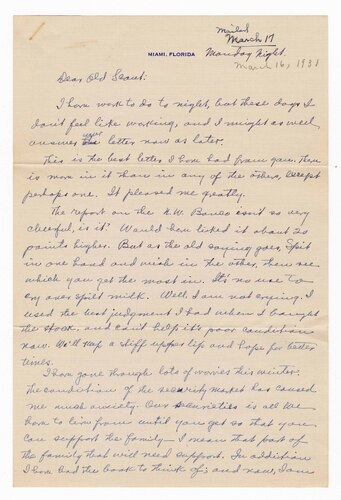 mailed
March 17
MIAMI, FLORIDA
Monday Night.
March 16, 1931
Dear Old Scout:
I have work to do to night, but these days I
don't feel like working, and I might as well
answer your letter now as later.
This is the best letter I have had from you. There
is more in it than in any of the others, except
perhaps one. It pleased me greatly.
The report on the N.W. Banco isn't so very
cheerful, is it? Would have liked it about 20
points higher. But as the old saying goes, Spit
in one hand and wish in the other, then see
which you get the most in. It's no use to
cry over spilt milk. Well, I am not crying. I
used the best judgment I had when I bought
the stock, and can't help it's poor condition
now. We'll keep a stiff upper lip and hope for better
times.
I have gone through lots of worries this winter.
The condition of the security market has caused
me much anxiety. Our securities is all we
have to live from until you get so that you
can support the family—I mean that part of
the family that will need support. In addition
I have had the book to think of; and now, I am